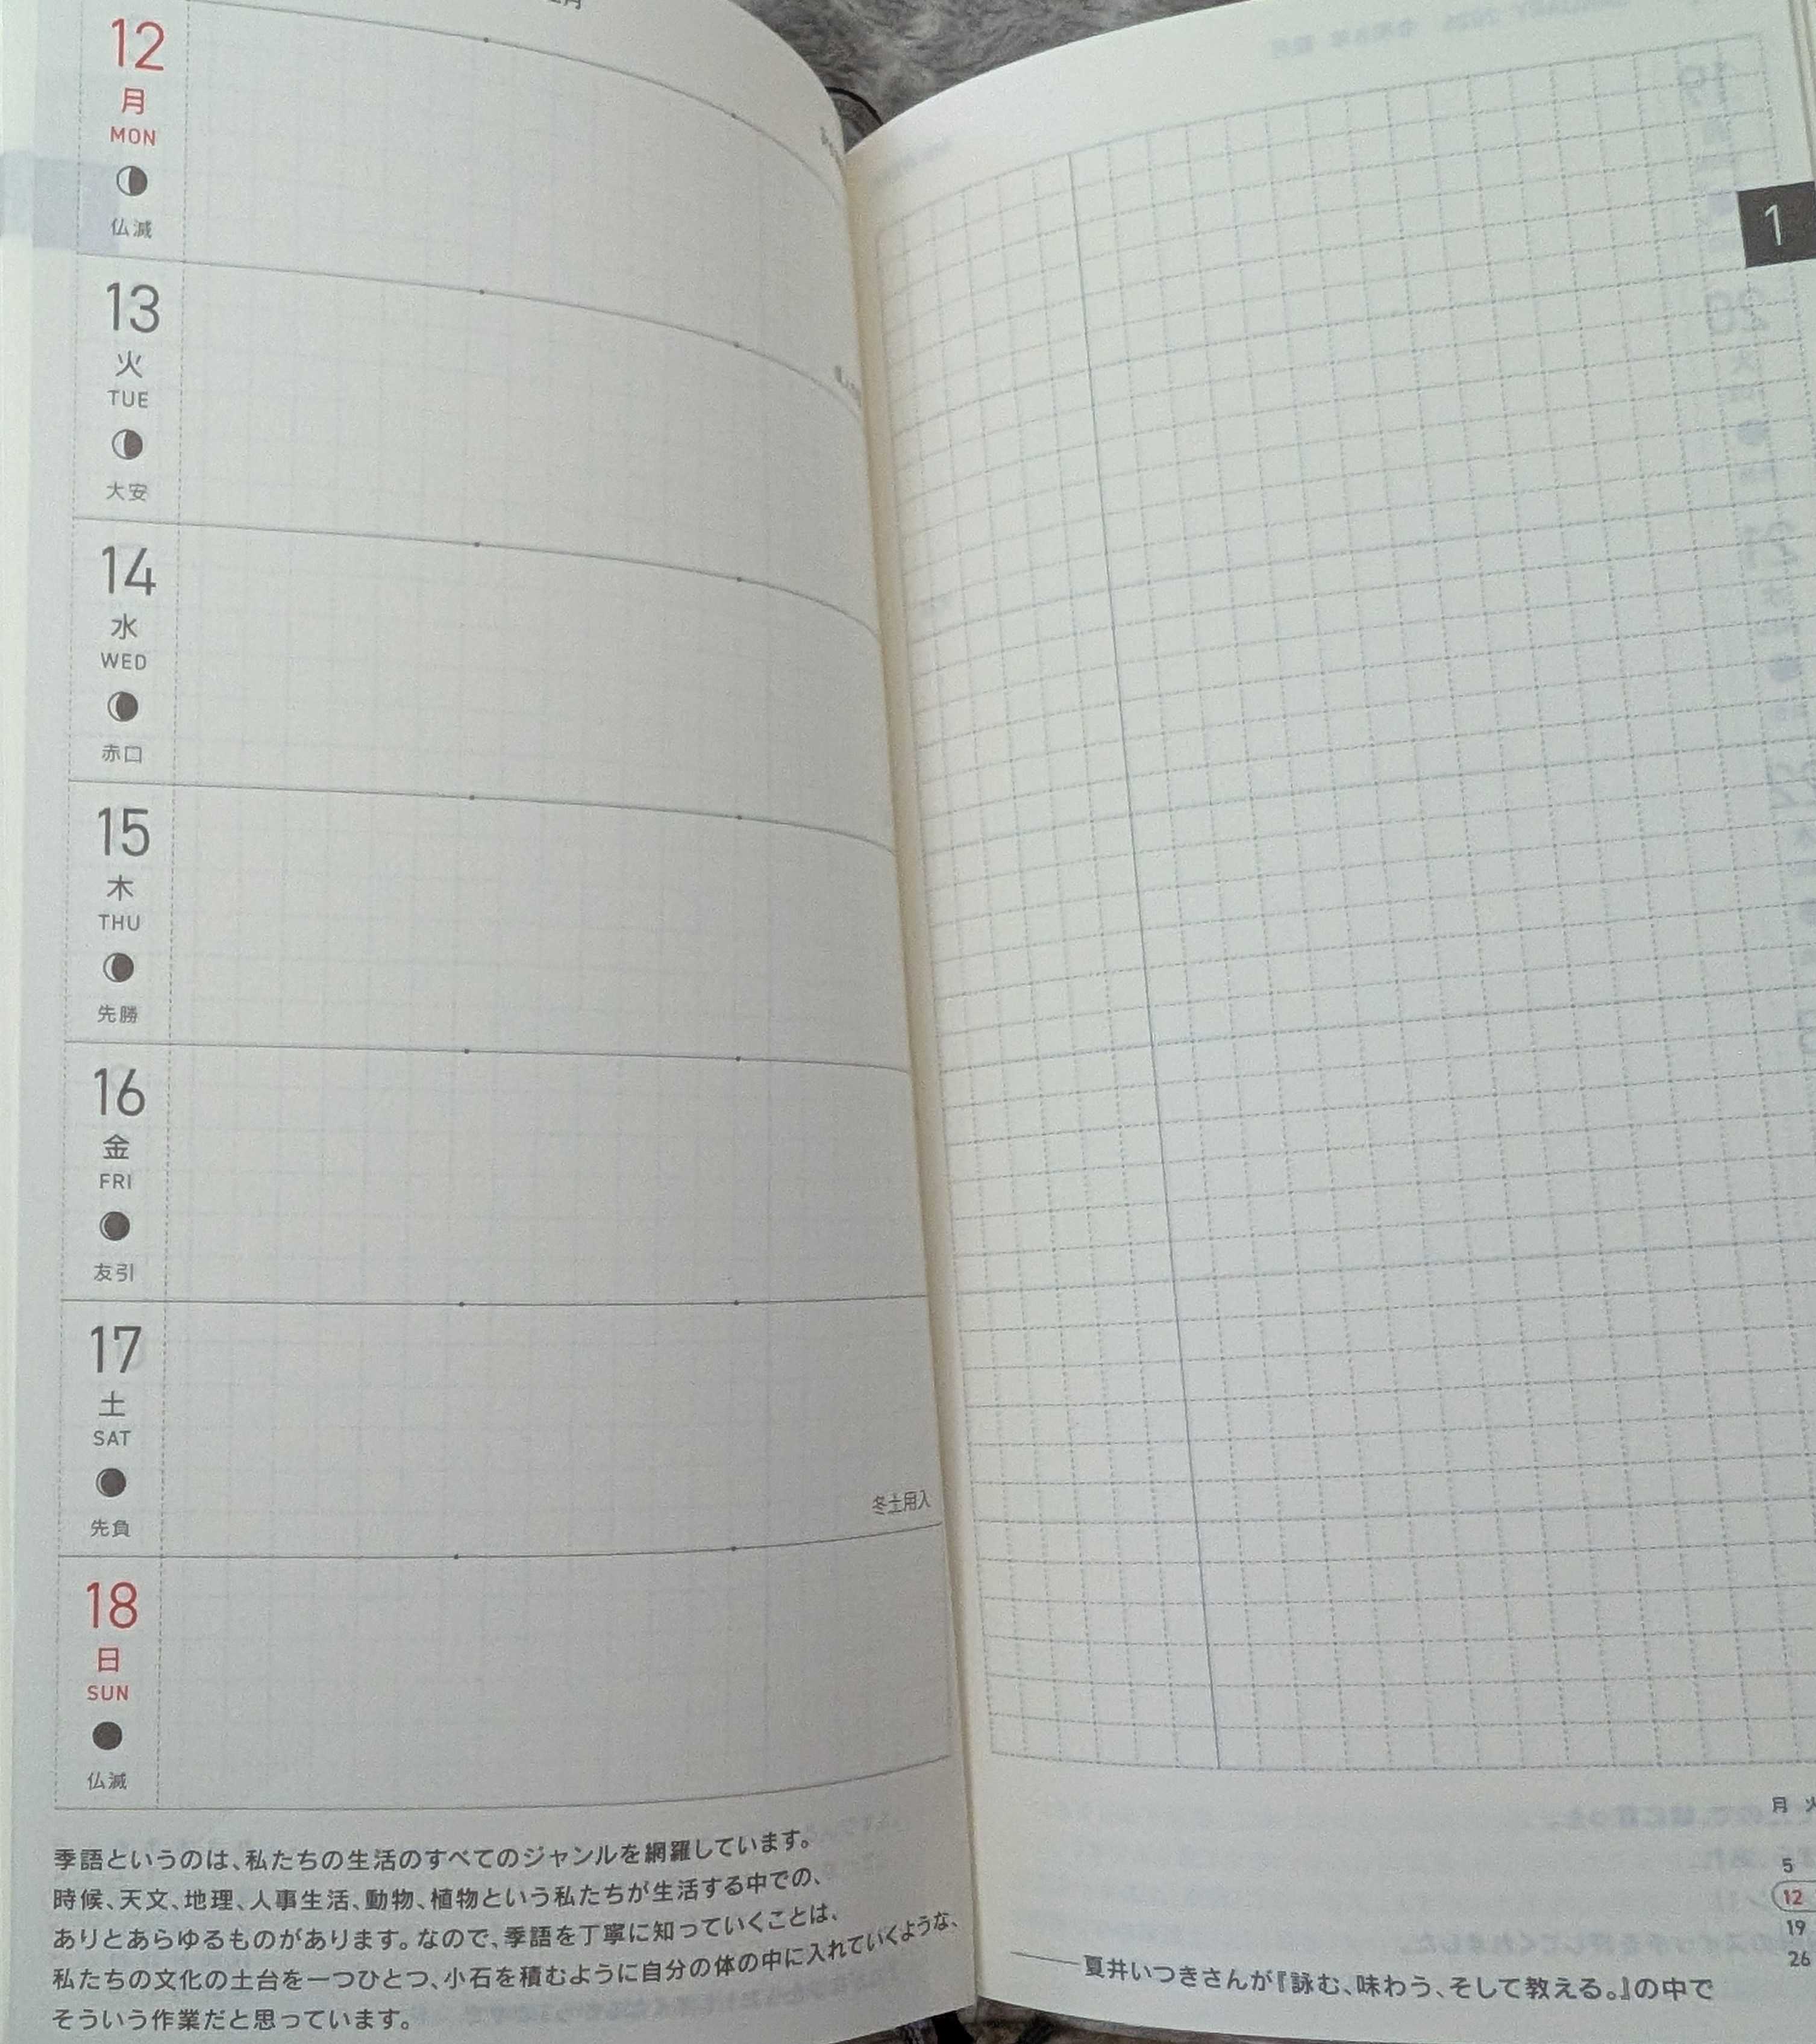 12
月
MON
仏滅
13
火
TUE
大安
14
水
WED
赤口
15
木
THU
先勝
16
金
FRI
友引
17
土
SAT
先負
冬土用入
18
日
SUN
仏滅
季語というのは、私たちの生活のすべてのジャンルを網羅しています。
時候、天文、地理、人事生活、動物、植物という私たちが生活する中での、
ありとあらゆるものがあります。なので、季語を丁寧に知っていくことは、
私たちの文化の土台を一つひとつ、小石を積むように自分の体の中に入れていくような、
そういう作業だと思っています。
1
月 火
5
12
19
26
——夏井いつきさんが『詠む、味わう、そして教える。』の中で